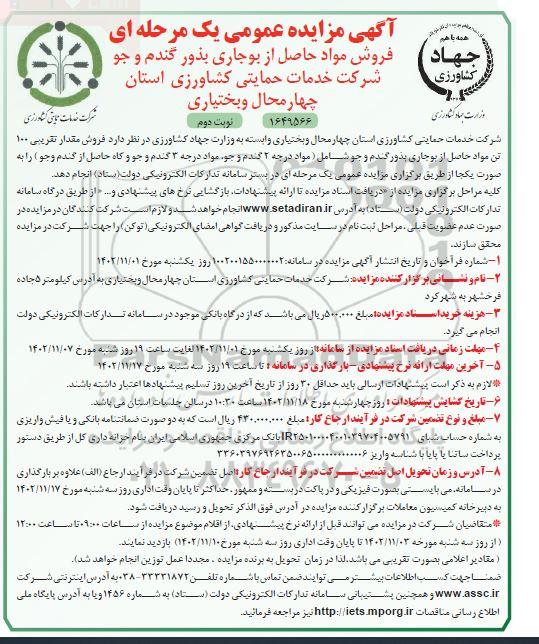 آگهی مزایده عمومی یک مرحله ای
فروش مواد حاصل از بوجاری بذور گندم و جو
شرکت خدمات حمایتی کشاورزی استان
چهارمحال وبختیاری
۱۶۴۹۵۶۶
نوبت دوم
همه با هم
جهاد
کشاورزی
وزارت جهاد کشاورزی
شرکت خدمات حمایتی کشاورزی
شرکت خدمات حمایتی کشاورزی استان چهارمحال وبختیاری وابسته به وزارت جهاد کشاورزی در نظر دارد فروش مقدار تقریبی ۱۰۰
تن مواد حاصل از بوجاری بذور گندم و جو شامل ( مواد درجه ۲ گندم و جو، مواد درجه ۳ گندم و جو و کاه حاصل از گندم وجو ) را به
صورت یکجا از طریق برگزاری مزایده عمومی یک مرحله ای در بستر سامانه تدارکات الکترونیکی دولت(ستاد) انجام دهد.
کلیه مراحل برگزاری مزایده از «دریافت اسناد مزایده تا ارائه پیشنهادات، بازگشایی نرخ های پیشنهادی و... » از طریق درگاه سامانه
تدارکات الکترونیکی دولت (ستاد) به آدرس www.setadiran.ir انجام خواهد شد و لازم است شرکت کنندگان در مزایده در
صورت عدم عضویت قبلی، مراحل ثبت نام در سایت مذکور و دریافت گواهی امضای الکترونیکی(توکن) را جهت شرکت در مزایده
محقق سازند.
۱-شماره فراخوان و تاریخ انتشار آگهی مزایده در سامانه: روز یکشنبه مورخ ۱۴۰۲/۱۱/۰۱
۲-نام و نشانی برگزار کننده مزایده:شرکت خدمات حمایتی کشاورزی استان چهارمحال وبختیاری به آدرس کیلومتر ۵ جاده
فرخشهر به شهرکرد
۳-هزینه خرید اسناد مزایده:مبلغ ۵۰۰.۰۰۰ ریال می باشد که از درگاه بانکی موجود در سامانه تدارکات الکترونیکی دولت
انجام می گیرد.
۴-مهلت زمانی دریافت اسناد مزایده از سامانه:از روز یکشنبه مورخ ۱۴۰۲/۱۱/۰۱ لغایت ساعت ۱۹ روز شنبه مورخ ۱۴۰۲/۱۱/۰۷
۵- آخرین مهلت ارائه نرخ پیشنهادی - بارگذاری در سامانه : تا ساعت ۱۹ روز سه شنبه مورخ ۱۴۰۲/۱۱/۱۷
*لازم به ذکر است پیشنهادات ارسالی باید حداقل ۳۰ روز از تاریخ آخرین روز تسلیم پیشنهادها اعتبار داشته باشند.
۶-تاریخ گشایش پیشنهادات : روز چهارشنبه مورخ ۱۴۰۲/۱۱/۱۸ ساعت ۱۰:۳۰ درسالن جلسات استان می باشد.
۷-مبلغ و نوع تضمین شرکت در فرآیند ارجاع کار: مبلغ ۴۳۰.۰۰۰.۰۰۰ ریال است که به دو صورت ضمانتنامه بانکی و یا فیش واریزی
به شماره حساب شبای بانک مرکزی جمهوری اسلامی ایران بنام خزانه داری کل از طریق دستور
پرداخت ساتنا یا پایا با شناسه واریز
۸-آدرس و زمان تحویل اصل تضمین شرکت در فرآیند ارجاع کار: اصل تضمین شرکت در فرآیند ارجاع (الف) علاوه بر بارگذاری
در سامانه، می بایستی بصورت فیزیکی و در پاکت دربسته و ممهور، حداکثر تا پایان وقت اداری روز سه شنبه مورخ ۱۴۰۲/۱۱/۱۷
به دبیرخانه کمیسیون معاملات برگزار کننده مزایده در آدرس فوق الذکر تحویل و رسید دریافت شود.
*متقاضیان شرکت در مزایده می توانند قبل از ارائه نرخ پیشنهادی، از اقلام موضوع مزایده از ساعات ۰۹:۰۰ تا ساعت ۱۲:۰۰
( از روز سه شنبه مورخه ۱۴۰۲/۱۱/۰۳ تا پایان وقت اداری روز سه شنبه مورخ ۱۴۰۲/۱۱/۱۰) بازدید نمایند.
( مقادیر اعلامی بصورت تقریبی می باشد، لذا در زمان تحویل به برنده مزایده ، مجددا عمل توزین انجام خواهد شد).
ضمنا جهت کسب اطلاعات بیشتر می توانید ضمن تماس با شماره تلفن ۳۳۳۳۱۸۷۲-۰۳۸ به آدرس اینترنتی شرکت
www.assc.ir و همچنین پشتیبانی سامانه تدارکات الکترونیکی دولت (ستاد) به شماره ۱۴۵۶ ویا به آدرس پایگاه ملی
اطلاع رسانی مناقصات http://iets.mporg.ir نیز مراجعه فرمائید.